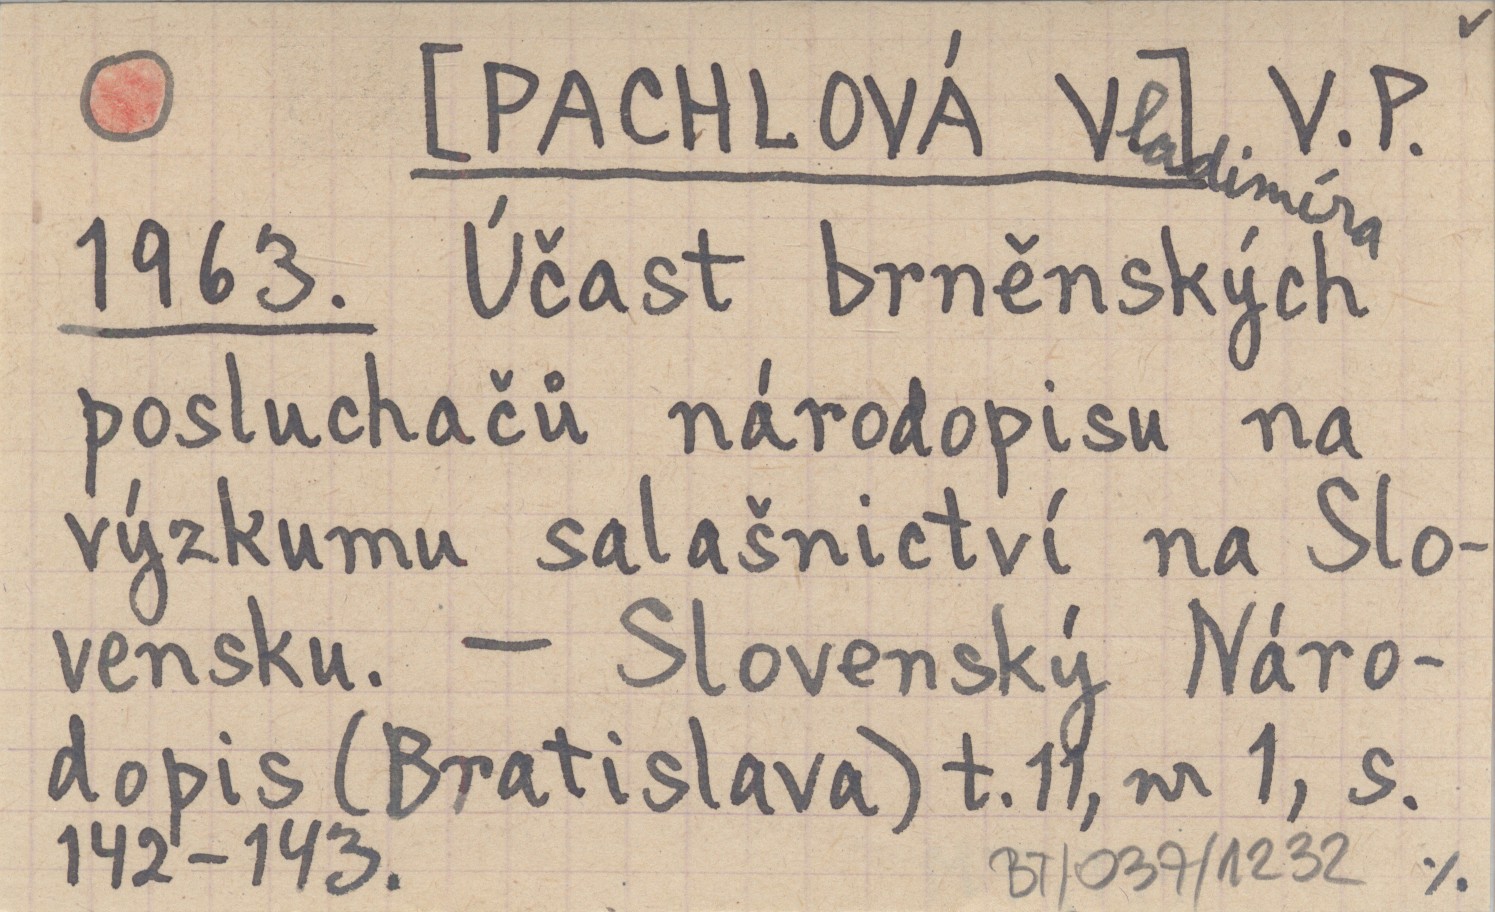 [PACHLOVÁ Vladimíra] V.P.
1963. Účast brněnských
posluchačů národopisu na
výzkumu salašnictví na Slo-
vensku. — Slovenský Náro-
dopis (Bratislava) t. 11, nr 1, s.
142-143.
BT/037/1232 ./.